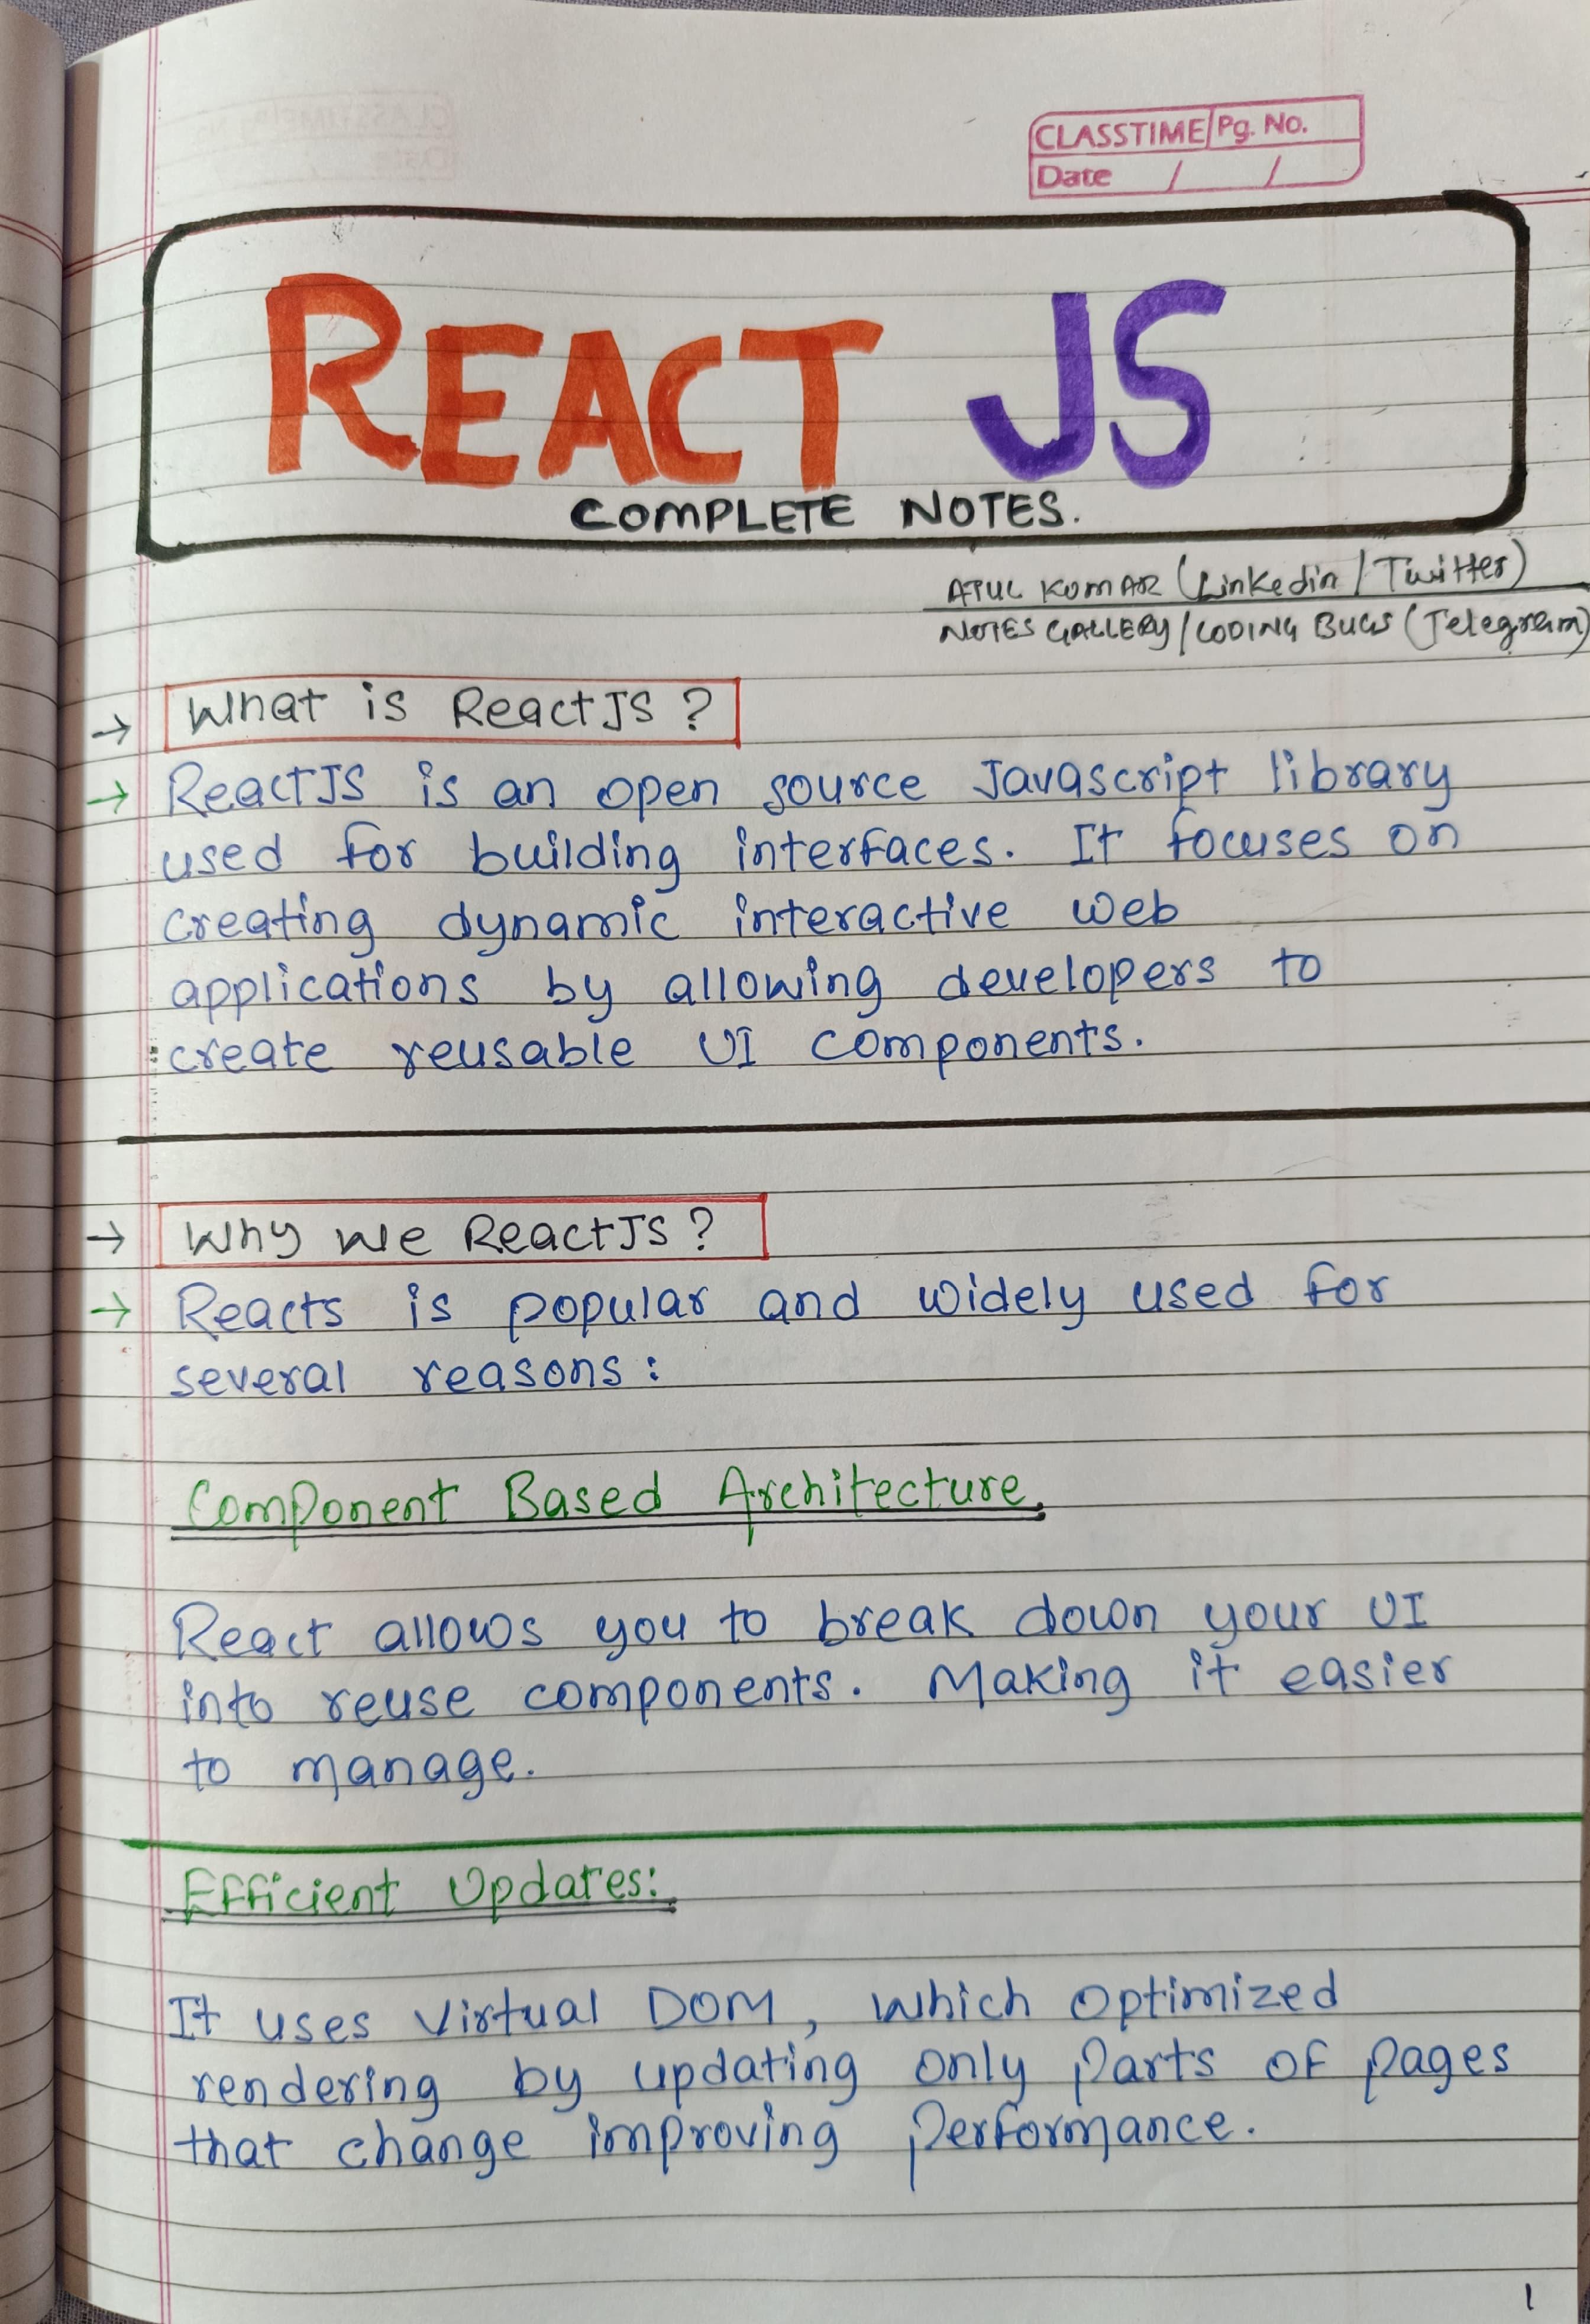 CLASSTIME Pg. No.
Date / /
REACT JS
COMPLETE NOTES.
ATUL KUMAR (Linkedin / Twitter)
NOTES GALLERY / CODING BUGS (Telegram)
→ What is ReactJS ?
→ ReactJS is an open source Javascript library
used for building interfaces. It focuses on
creating dynamic interactive web
applications by allowing developers to
create reusable UI components.
→ Why we ReactJS ?
→ Reacts is popular and widely used for
several reasons :
Component Based Architecture.
React allows you to break down your UI
into reuse components. Making it easier
to manage.
Efficient Updates:
It uses Virtual DOM, which optimized
rendering by updating only parts of pages
that change improving performance.
1